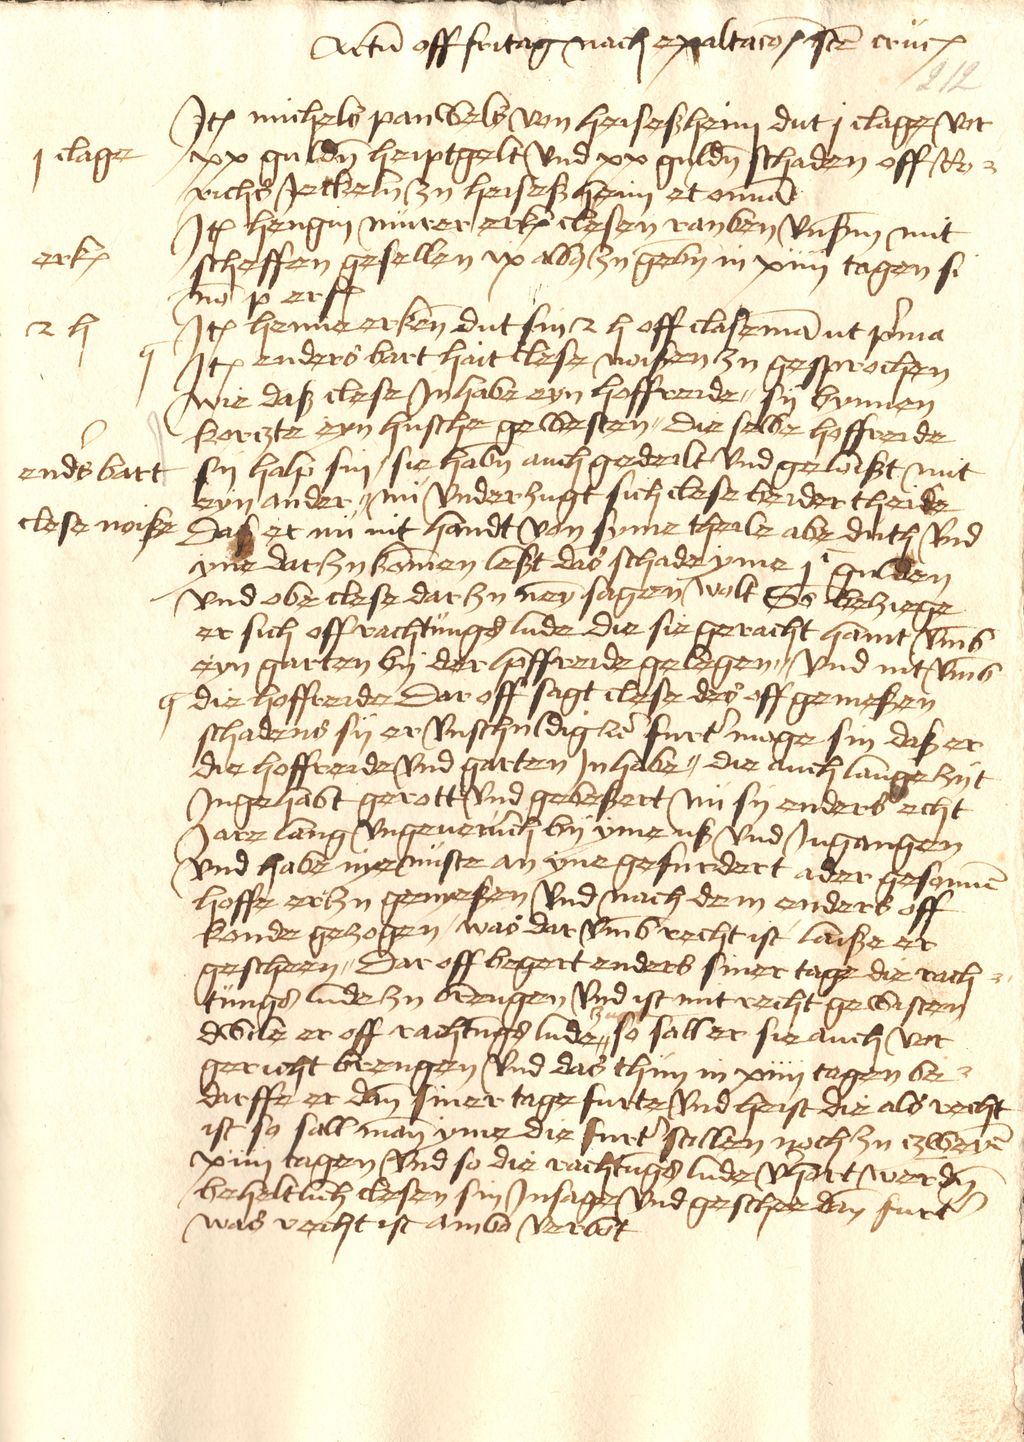 Actu(m) off fritag nach exaltaco(n)is s(an)cte cruc(is)
212
It(em) michels pauwels von heisesheim dut j clage vor
j clage
xx guld(e)n heiptgelt und xx guld(e)n schaden off
richs Jeckeln zu heisesheim et om(n)ia
It(em) hengin murer erk(ennt) clesen ranben unß(er)m mit
erk(ennt)
scheffen gesellen ix alb(us) zu geb(e)n in xiiij tagen si
no(n) p(er) erf(olgt)
2 h
It(em) henne erken dut sin 2 h off clasema(n) ut p(ri)ma
It(em) enders bart hait clese noißen zu gesprochen
wie daß clese Inhabe eyn hoffreide sij bynnen
kortzte eyn husche gewesten die selbe hoffreide
enders bart
sij halp sin sie hab(e)n auch gedeilt und geloißt mit
eyn ander nu underzugt sich clese beider theile
clese noiße
Daß er nu nit handt von syme theile abe duth und
yne dar zu komen leßt das schade yme j gulden
und obe clese dar zu neyn sagen wolt So beziege
er sich off rachtungs lude die sie geracht hannt umb
eyn garten by der hoffreide gelegen und nit umb
die hoffreide Dar off sagt clese des off gemeßen
schadens sij er unschuldig furt(er) moge sin daß er
die hoffreide und garten Inhabe die auch lange zijt
Ingehabt gerott und gebeßert nu sij enders echt
Jare lang ungeverlich by yme uß und Ingangen
und habe nie nuste an yne gefurdert ader gesonne(n)
hoffe er zu genießen und nach dem enders off
konde gezogen was dar umb recht ist laiße er
gescheen Dar off begert enders siner tage die rach
tungs lude zu brengen und ist mit recht gewisten
dwile er off rachtungs lude zug so sall er sie auch vor
gericht brengen und das thun in xiiij tagen be
darffe er dan siner tage furte und heist die als recht
ist so sall man yme die furt(er) stillen noch zu zweye(n)
xiiij tagen und so die rachtungs lude v(er)hort werd(e)n
beheltlich clesen sin Insage und geschee dan furt(er)
was recht ist ambo verbot